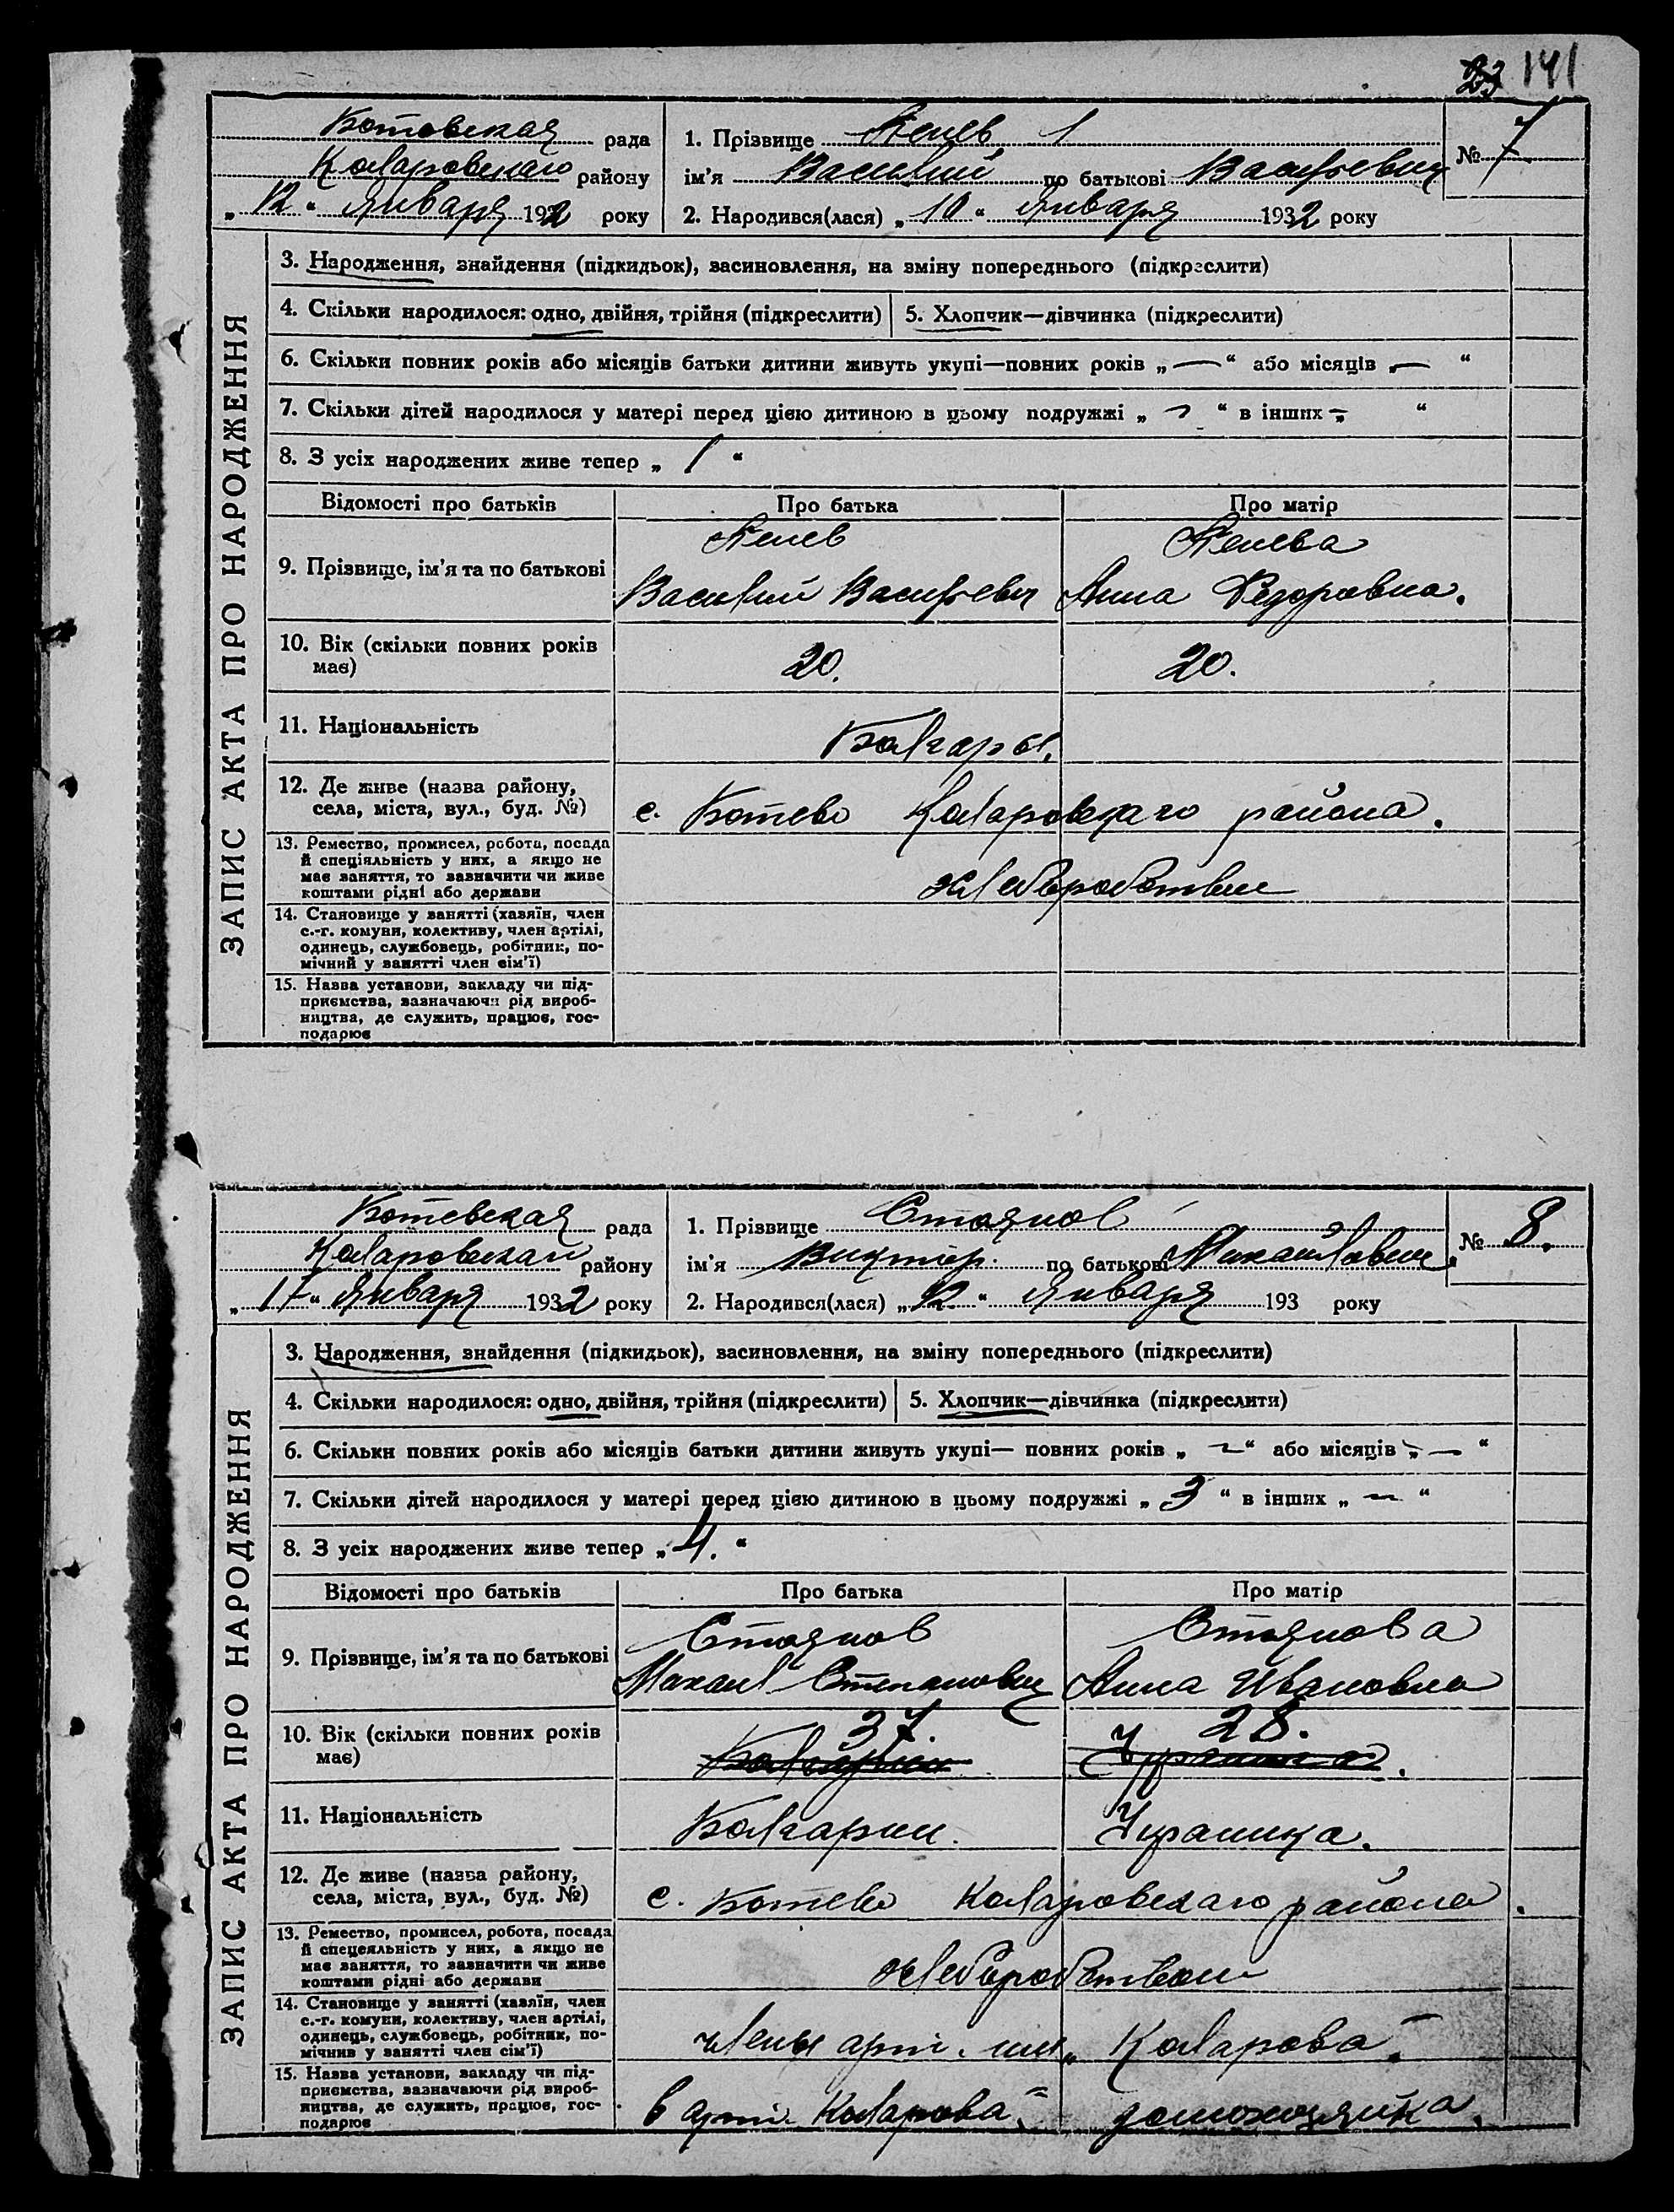 23 141
Ботевская рада
Коларовского району
„ 12 “ Января 1932 року
1. Прізвище Пенев
ім'я Василий по батькові Васильевич
2. Народився(лася) „ 10 “ Января 1932 року
№ 7
ЗАПИС АКТА ПРО НАРОДЖЕННЯ
3. Народження, знайдення (підкидьок), засиновлення, на зміну попереднього (підкреслити)
4. Скільки народилося: одно, двійня, трійня (підкреслити) 5. Хлопчик—дівчинка (підкреслити)
6. Скільки повних років або місяців батьки дитини живуть укупі—повних років „ — “ або місяців „ — “
7. Скільки дітей народилося у матері перед цією дитиною в цьому подружжі „ – “ в інших „ – “
8. З усіх народжених живе тепер „ 1 “
Відомості про батьків Про батька Про матір
9. Прізвище, ім'я та по батькові
Пенев Пенева
Василий Васильевич Анна Федоровна.
10. Вік (скільки повних років має) 20. 20.
11. Національність Болгары.
12. Де живе (назва району, села, міста, вул., буд. №) с. Ботево Коларовскаго района.
13. Ремество, промисел, робота, посада
й спеціяльність у них, а якщо не
має заняття, то зазначити чи живе
коштами рідні або держави
14. Становище у занятті (хазяїн, член
с.-г. комуни, колективу, член артілі,
одинець, службовець, робітник, по-
мічний у занятті член сім'ї)
15. Назва установи, закладу чи під-
приємства, зазначаючи рід вироб-
ництва, де служить, працює, гос-
подарює
Ботевская рада
району
„ 17 “ Января 1932 року
1. Прізвище Стоянов
ім'я Виктор. по батькові Михайлович.
2. Народився(лася) „ 12 “ Января 193 року
№ 8.
ЗАПИС АКТА ПРО НАРОДЖЕННЯ
3. Народження, знайдення (підкидьок), засиновлення, на зміну попереднього (підкреслити)
4. Скільки народилося: одно, двійня, трійня (підкреслити) 5. Хлопчик—дівчинка (підкреслити)
6. Скільки повних років або місяців батьки дитини живуть укупі— повних років „ – “ або місяців „ — “
7. Скільки дітей народилося у матері перед цією дитиною в цьому подружжі „ 3 “ в інших „ – “
8. З усіх народжених живе тепер „ 4. “
Відомості про батьків Про батька Про матір
9. Прізвище, ім'я та по батькові
Стоянов Стоянова
Михаил Степанович Анна Ивановна
10. Вік (скільки повних років має) 37. 28.
11. Національність Болгарин.
12. Де живе (назва району, села, міста, вул., буд. №) с. Ботево Коларовскаго района.
13. Ремество, промисел, робота, посада
й спецеяльність у них, а якщо не
має заняття, то зазначити чи живе
коштами рідні або держави
14. Становище у занятті (хазяїн, член
с.-г. комуни, колективу, член артілі,
одинець, службовець, робітник, по-
мічник у занятті член сім'ї)
члены арт. им. „Коларова“.
15. Назва установи, закладу чи під-
приємства, зазначаючи рід вироб-
ництва, де служить, працює, гос-
подарює
в арт. Коларова“. домохозяйка.